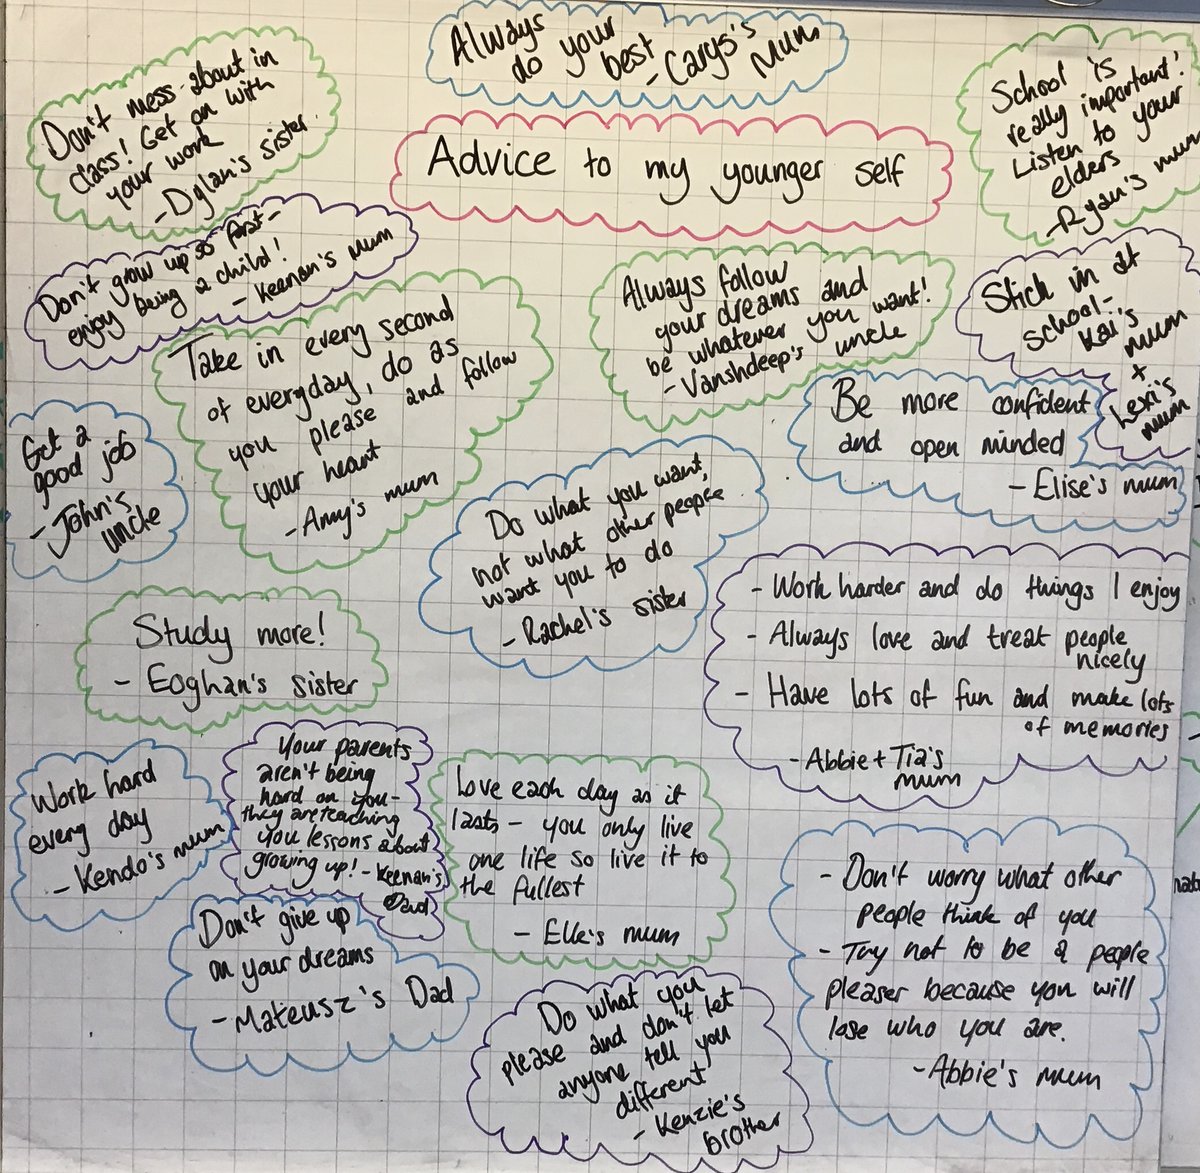 Always
do your
best
- Carys's
mum
Don't mess about in
class! Get on with
your work
- Dylan's sister.
School is
really important!
Listen to your
elders
- Ryan's mum
Advice to my younger self
Don't grow up so fast -
enjoy being a child!
- Keenan's mum
Always follow
your dreams and
be whatever you want!
- Vanshdeep's uncle
Stick in at
school -
Kai's
mum
+
Lexi's
mum
Take in every second
of everyday, do as
you please and follow
your heart
- Amy's mum
Be more confident
and open minded
- Elise's mum
Get a
good job
- John's
uncle
Do what you want,
not what other people
want you to do
- Rachel's sister
- Work harder and do things I enjoy
- Always love and treat people
nicely
- Have lots of fun and make lots
of memories
- Abbie + Tia's
mum
Study more!
- Eoghan's sister
Your parents
aren't being
hard on you -
they are teaching
you lessons about
growing up! - Keenan's
Dad
Work hard
every day
- Kendo's mum
Love each day as it
lasts - you only live
one life so live it to
the fullest
- Elle's mum
- Don't worry what other
people think of you
- Try not to be a people
pleaser because you will
lose who you are.
- Abbie's mum
Don't give up
on your dreams
- Mateusz's Dad
Do what you
please and don't let
anyone tell you
different
- Kenzie's
brother